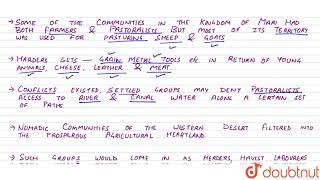 → Some of the Communities in the Kingdom of Mari Had
Both Farmers & Pastoralists But Most of its Territory
was used for pasturing sheep & goats
→ Harders gets — Grain, Metal Tools etc. in Return of Young
Animals, Cheese, Leather & Meat.
→ Conflicts Existed, Settled Groups may Deny Pastoralists
Access to River & Canal Water along a Certain set
of Paths.
→ Nomadic Communities of the Western Desert Filtered into
the Prosperous Agricultural Heartland.
→ Such Groups would Come in as Herders, Havist Labourers
doubtnut